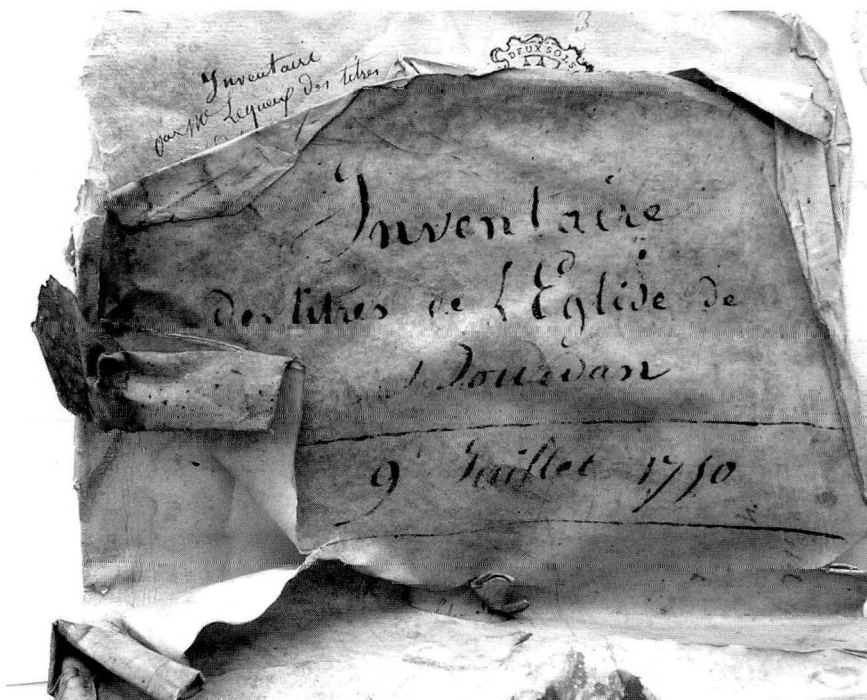 Inventaire
par Me Lequeux des titres
DEUX SOLS
3
Inventaire
des titres de l'Eglise de
Dourdan
9e Juillet 1750